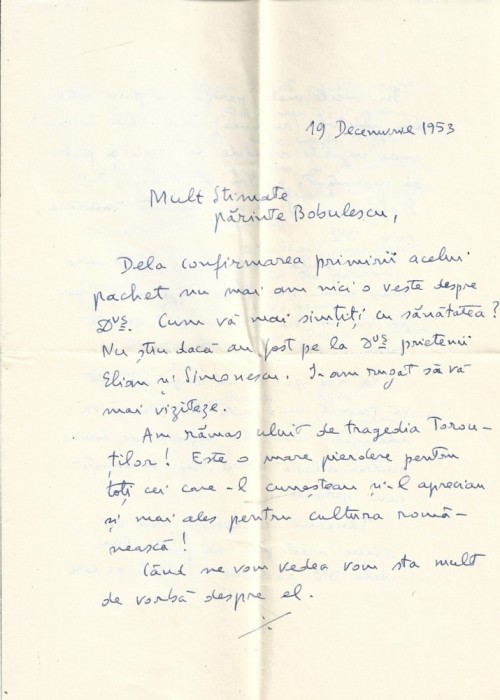 19 Decembrie 1953
Mult Stimate
părinte Bobulescu,
Dela confirmarea primirii acelui
pachet nu mai am nici o veste despre
Dvs. Cum vă mai simțiți cu sănătatea?
Nu știu dacă au fost pe la Dvs prietenii
Elian și Simonescu. I-am rugat să vă
mai viziteze.
Am rămas uluit de tragedia Torou-
ților! Este o mare pierdere pentru
toți cei care-l cunoșteau și-l apreciau
și mai ales pentru cultura romă-
nească!
Când ne vom vedea vom sta mult
de vorbă despre el.